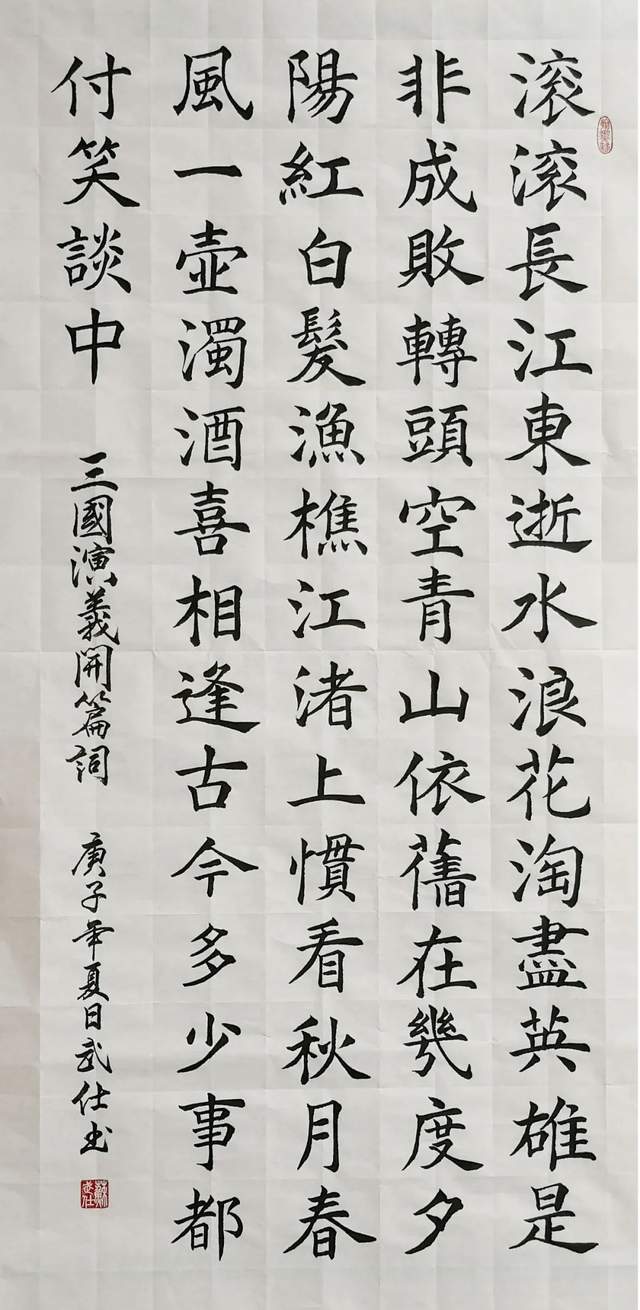 滚滚長江東逝水浪花淘盡英雄是
非成敗轉頭空青山依舊在幾度夕
陽紅白髮漁樵江渚上慣看秋月春
風一壺濁酒喜相逢古今多少事都
付笑談中
三國演義開篇詞 庚子年夏日武仕书